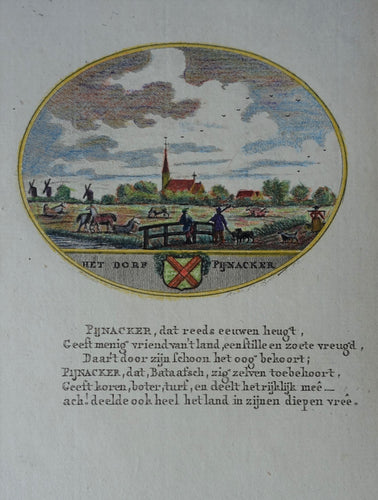 HET DORP PIJNACKER
PIJNACKER, dat reeds eeuwen heugt,
Geeft menig vriend van't land, een stille en zoete vreugd,
Daar't door zijn schoon het oog bekoort;
PIJNACKER, dat, Bataafsch, zig zelven toebehoort,
Geeft koren, boter, turf, en deelt het rijklijk meê __
ach! deelde ook heel het land in zijnen diepen vreê.